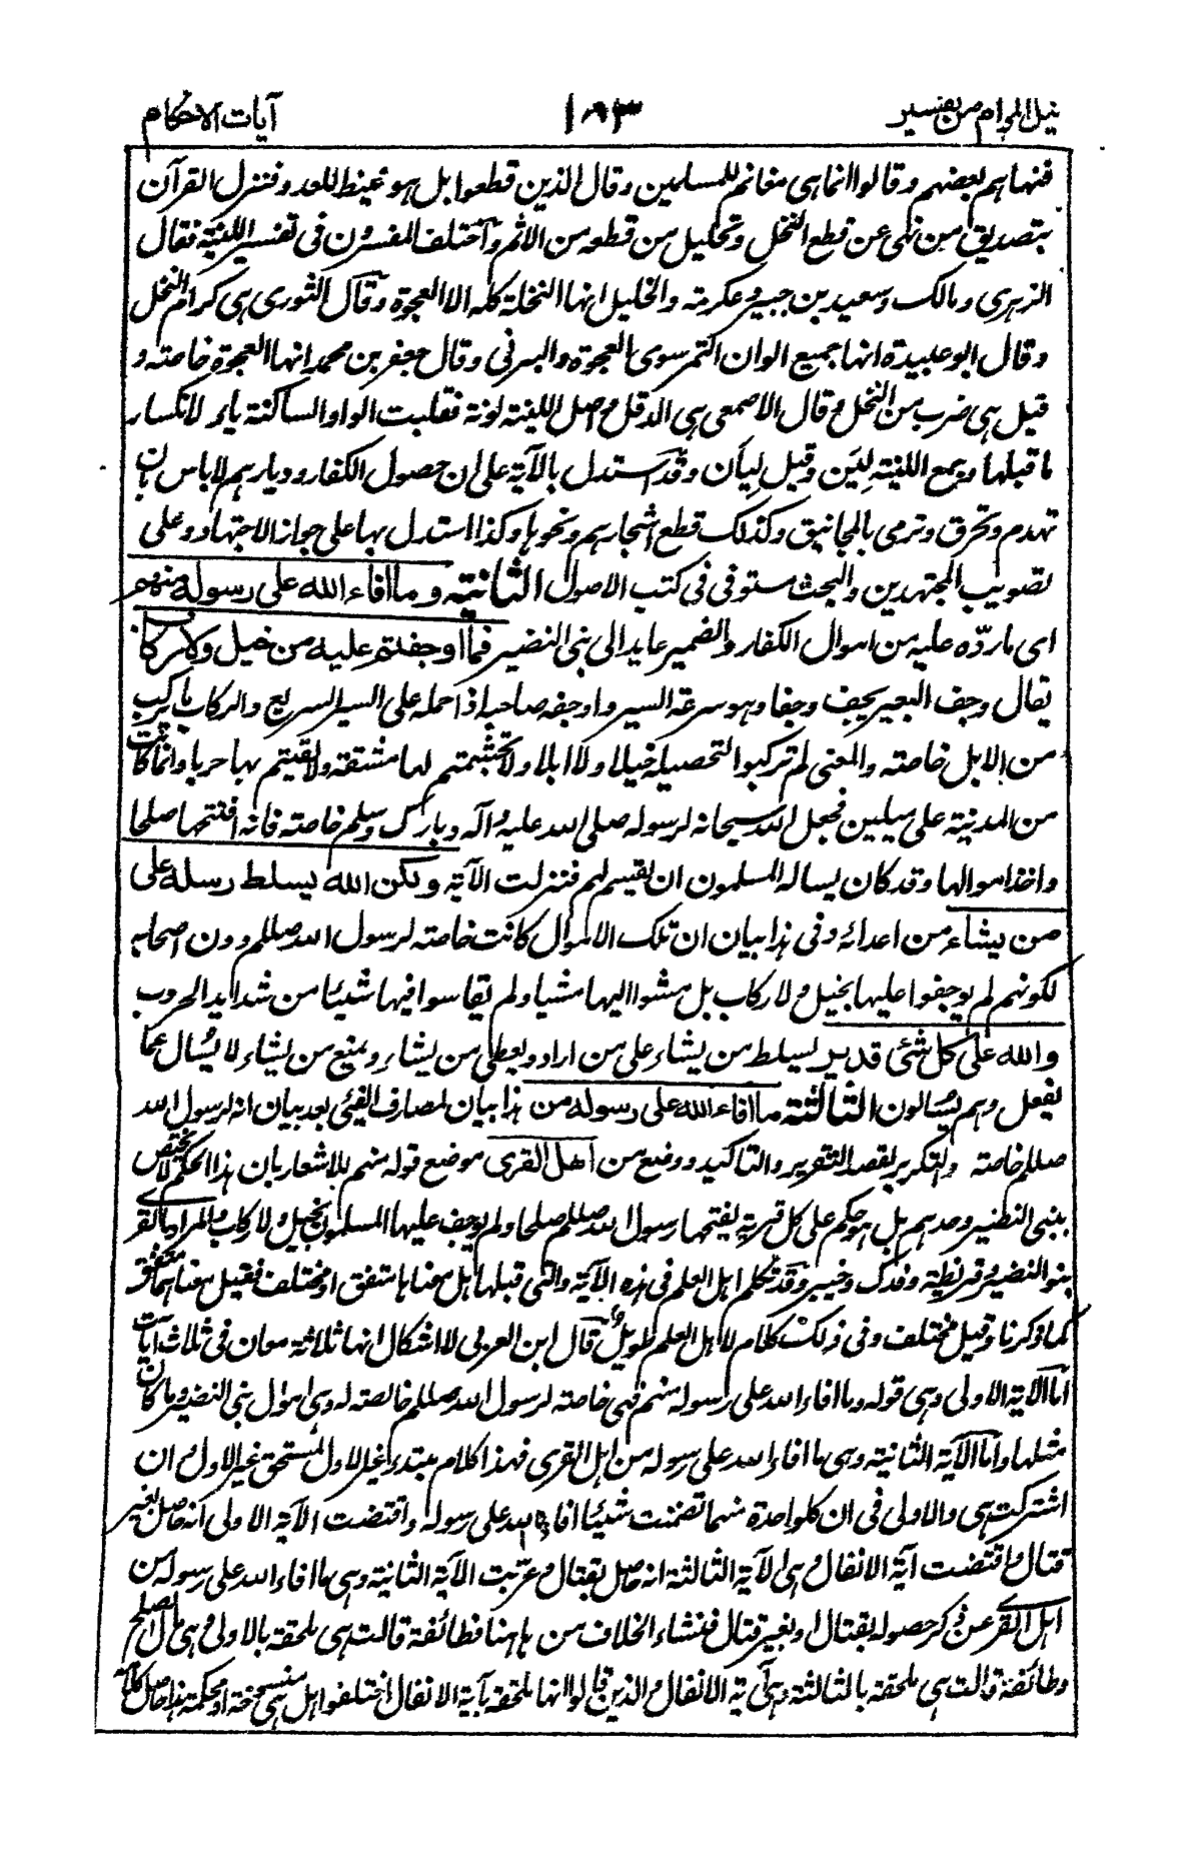 نيل المرام من تفسير ١٨٣ آيات الاحكام
فنهاهم بعضهم وقالوا انما هى مغانم للمسلمين وقال الذين قطعوا بل هو غيظ للعدو فنزل القرآن
بتصديق من نهى عن قطع النخل وتحليل من قطعه من الاثم وآختلف المفسرون فى تفسير اللينة فقال
الزهرى ومالك وسعيد بن جبير وعكرمة والخليل انها النخلة كله الا العجوة وقال الثورى هى كرام النخل
وقال ابو عبيدة انها جميع الوان التمر سوى العجوة والبرنى وقال جعفر بن محمد انها العجوة خاصة و
قيل هى ضرب من النخل وقال الاصمعى هى الدقل واصل اللينة لونة فقلبت الواو الساكنة ياء لانكسار
ما قبلها وجمع اللينة لِيَن وقيل لِيَان وقد آستدل بالآية على ان حصول الكفار وديارهم لا باس بان
تهدم وتحرق وترمى بالمجانيق وكذلك قطع اشجارهم ونحوها وكذا استدل بها على جواز الاجتهاد وعلى
تصويب المجتهدين والبحث مستوفى فى كتب الاصول الثانية وما افاء الله على رسوله منهم
اى ما ردّه عليه من اموال الكفار والضمير عايد الى بنى النضير فما اوجفتم عليه من خيل ولا ركاب
يقال وجف البعير يجف وجفا وهو سرعة السير واوجفه صاحبه اذا حمله على السير السريع والركاب ما يركب
من الابل خاصة والمعنى لم تركبوا لتحصيله خيلا ولا ابلا ولا تجشمتم لها مشقة ولا لقيتم بها حربا وانما كانت
من المدينة على ميلين فجعل الله سبحانه لرسوله صلى الله عليه وآله وبارك وسلم خاصة فانه افتتحها صلحا
واخذ اموالها وقد كان يساله المسلمون ان يقسم لهم فنزلت الآية ولكن الله يسلط رسله على
من يشاء من اعدائه وفى هذا بيان ان تلك الاموال كانت خاصة لرسول الله صللم دون اصحابه
لكونهم لم يوجفوا عليها بخيل ولا ركاب بل مشوا اليها مشيا ولم يقاسوا فيها شيئا من شدايد الحروب
والله على كل شئ قدير يسيلط من يشاء على من اراد ويعطى من يشاء ويمنع من يشاء لا يسُال عما
يفعل وهم يسُالون الثالثة ما افاء الله على رسوله من هذا بيان لمصارف الفئى بعد بيان انه لرسول الله
صللم خاصة والتكرير لقصد التقرير والتاكيد ووضع من اهل القرى موضع قوله منهم للاشعار بان هذا الحكم لا يختص
ببنى النضير وحدهم بل هو حكم على كل قرية يفتحها رسول الله صللم صلحا ولم يوجف عليها المسلمون بخيل ولا ركاب والمراد بالقرى
بنو النضير وقريظة وفدك وخيبر وقد تكلم اهل العلم فى هذه الآية والتى قبلها هل معناها متفق او مختلف فقيل معناهما متفق
كما ذكرنا وقيل مختلف وفى ذلك كلام لاهل العلم طويل قال ابن العربى لا اشكال انها ثلاثة معان فى ثلاث آيات
اما الآية الاولى وهى قوله وما افاء الله على رسوله منهم فهى خاصة لرسول الله صللم خالصة له وهى اموال بنى النضير وما كان
مثلها واما الآية الثانية وهى ما افاء الله على رسوله من اهل القرى فهذا كلام مبتدء غير الاول لمستحق غير الاول وان
اشتركت هى والاولى فى ان كل واحدة منهما تضمنت شيئا افاءه الله على رسوله واقتضت الآية الاولى انه حاصل بغير
قتال واقتضت آية الانفال وهى الآية الثالثة انه حاصل بقتال وعريت الآية الثانية وهى ما افاء الله على رسوله من
اهل القرى عن ذكر حصوله بقتال او بغير قتال فنشاء الخلاف من هاهنا فطائفة قالت هى ملحقة بالاولى وهى مال الصلح
وطائفة قالت هى ملحقة بالثالثة وهى آية الانفال والذين قالوا انها ملحقة بآية الانفال اختلفوا هل هى منسوخة او محكمة هذا حاصل كلامه